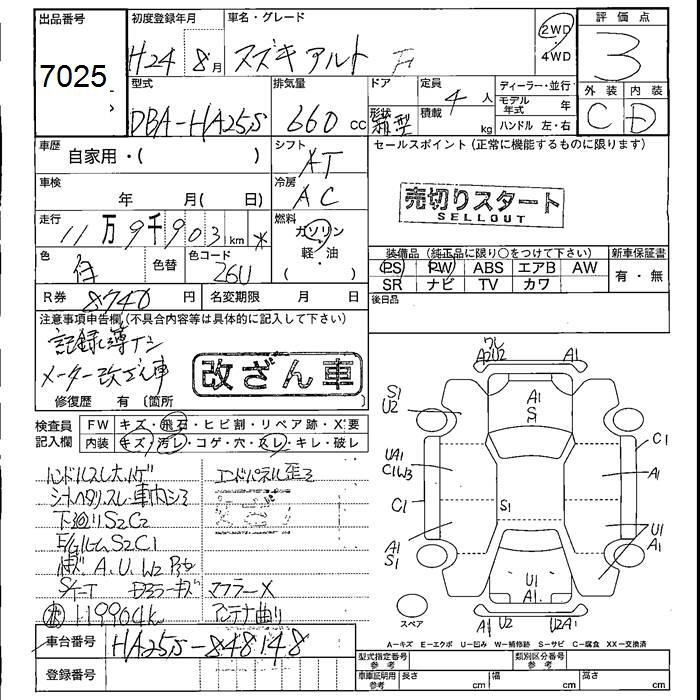 出品番号 初度登録年月 車名・グレード 評価点
7025 H24 8月 スズキアルト F 2WD ・ 4WD 3
外装 内装
C D
型式 排気量 ドア 定員 ディーラー・並行
DBA-HA25S 660cc 4人 モデル年式 年
形状 積載 kg ハンドル 左・右
箱型
車歴 シフト セールスポイント(正常に機能するものに限ります)
自家用・( ) AT
車検 冷房
年 月( 日) AC
売切りスタート
SELLOUT
走行 燃料
11万9千903km * ガソリン・軽・油 ( )
装備品(純正品に限り○をつけて下さい) 新車保証書
色 白 色替 色コード 26U
PS PW ABS エアB AW 有・無
SR ナビ TV カワ
R券 8740円 名変期限 月 日
後日品
注意事項申告欄(不具合内容等は具体的に記入して下さい)
記録簿ナシ
メーター改ざん車
改ざん車
修復歴 有(箇所
検査員記入欄 FW キズ・飛石・ヒビ割・リペア跡・X要
内装 キズ・汚レ・コゲ・穴・スレ・キレ・破レ
ハンドルスレ大 ハゲ
シートヘタリスレ 車内シミ
下廻りS2C2
S2C1
A.U.W2
119904k
エンドパネル歪ミ
マフラーX
アンテナ曲リ
ワレ
A2U2 A1
S1
U2
A1
S
UA1
C1W3
C1
A1
C1
S1
A1
S
U1
A1
U1
A1
スペア
A1 U2 U2A1
A−キズ E−エクボ U−凹み W−補修跡 S−サビ C−腐食 XX−交換済
車台番号 HA25S-848148
型式指定番号 参考 類別区分番号 参考
登録番号
車庫証明用 参考 長さ cm 幅 cm 高さ cm